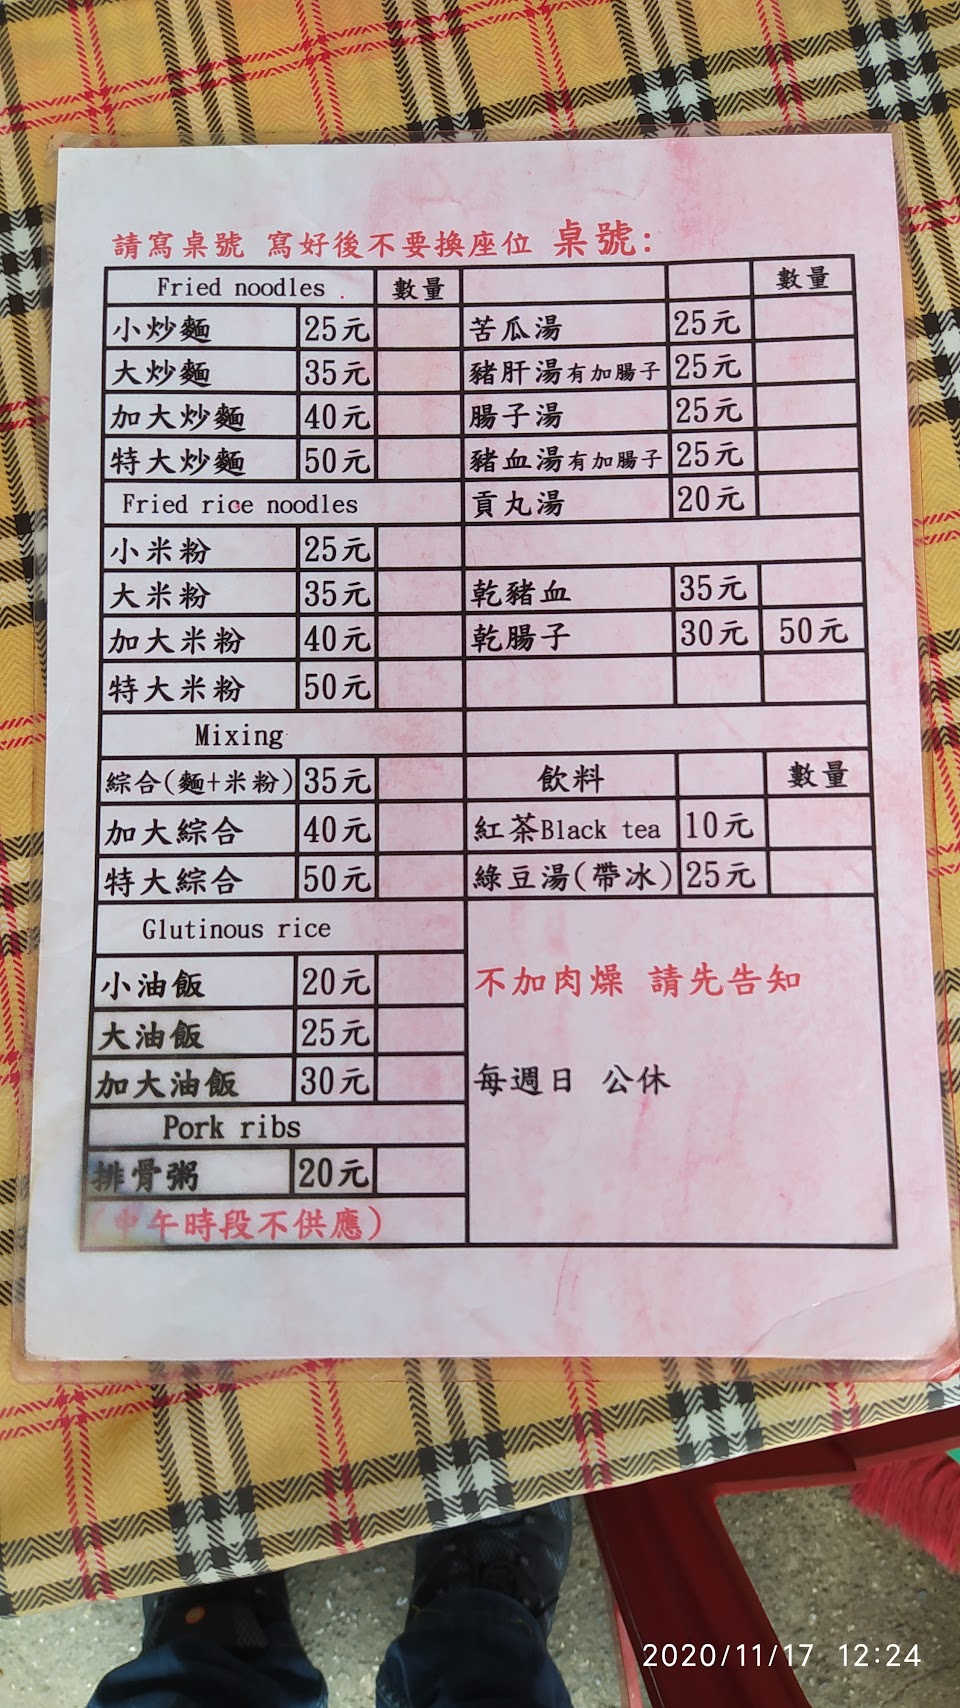 請寫桌號 寫好後不要換座位 桌號:
Fried noodles 數量
小炒麵 25元
大炒麵 35元
加大炒麵 40元
特大炒麵 50元
Fried rice noodles
小米粉 25元
大米粉 35元
加大米粉 40元
特大米粉 50元
Mixing
綜合(麵+米粉) 35元
加大綜合 40元
特大綜合 50元
Glutinous rice
小油飯 20元
大油飯 25元
加大油飯 30元
Pork ribs
排骨粥 20元
(中午時段不供應)
數量
苦瓜湯 25元
豬肝湯有加腸子 25元
腸子湯 25元
豬血湯有加腸子 25元
貢丸湯 20元
乾豬血 35元
乾腸子 30元 50元
飲料 數量
紅茶Black tea 10元
綠豆湯(帶冰) 25元
不加肉燥 請先告知
每週日 公休
2020/11/17 12:24